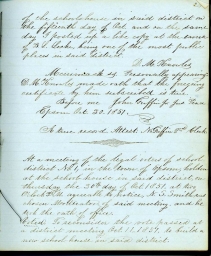 of the schoolhouse in said district on
the fifteenth day of Oct. and on the same
day I posted up a like copy at the
of B. F. Locke, being one of the most public
places in said district.
D. M. Knowles
Merrimack ss. Personally appearing
D. M. Knowles made oath that the foregoing
certificate by him subscribed is true
Before me John Griffin jus. Peace
Epsom Oct. 30. 1851.
A true record Attest. N. Griffin Dt. Clerk
At a meeting of the legal voters of school
district No. 1, in the town of Epsom, holden
at the schoolhouse in said district, on
thursday the 30th day of Oct. 1851, at two
o'clock P.M. agreeable to notice, Smith was
chosen Moderator of said meeting and he
took the oath of office.
Voted to the vote passed at
a district meeting Oct. 11, 1851, to build a
new school house in said district.